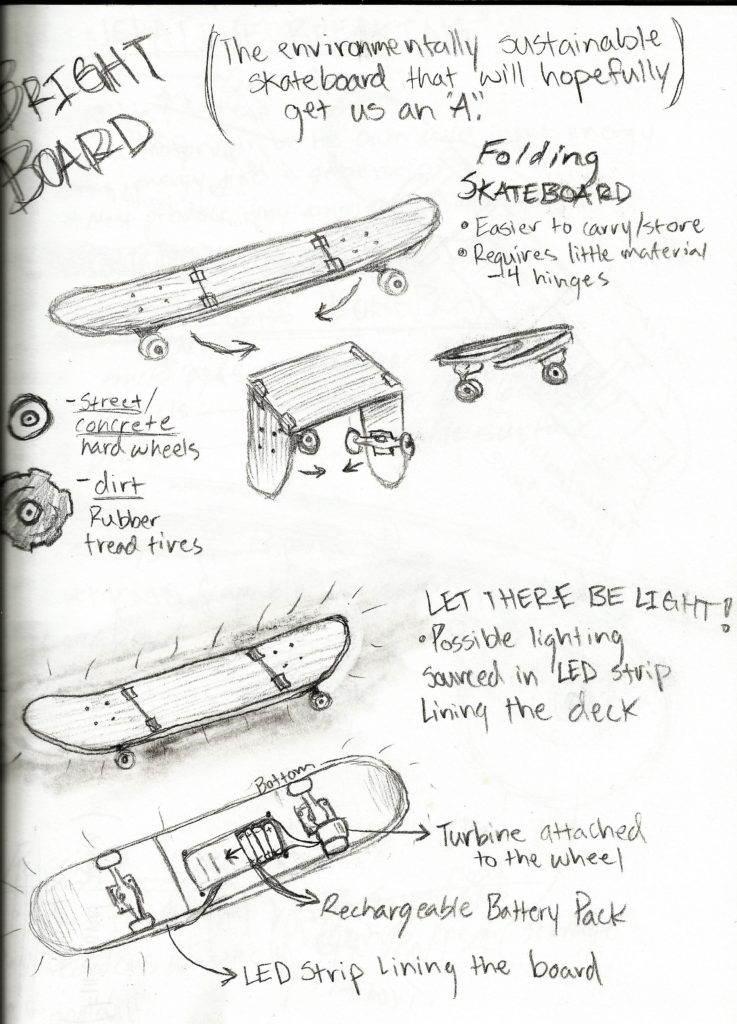 BRIGHT
BOARD
(The environmentally sustainable
skateboard that will hopefully
get us an "A".)
Folding
SKATEBOARD
• Easier to carry/store
• Requires little material
- 4 hinges
- Street/
concrete
hard wheels
- dirt
Rubber
tread tires
LET THERE BE LIGHT!
• Possible lighting
sourced in LED strip
Lining the deck
Bottom
Turbine attached
to the wheel
Rechargeable Battery Pack
LED Strip Lining the board